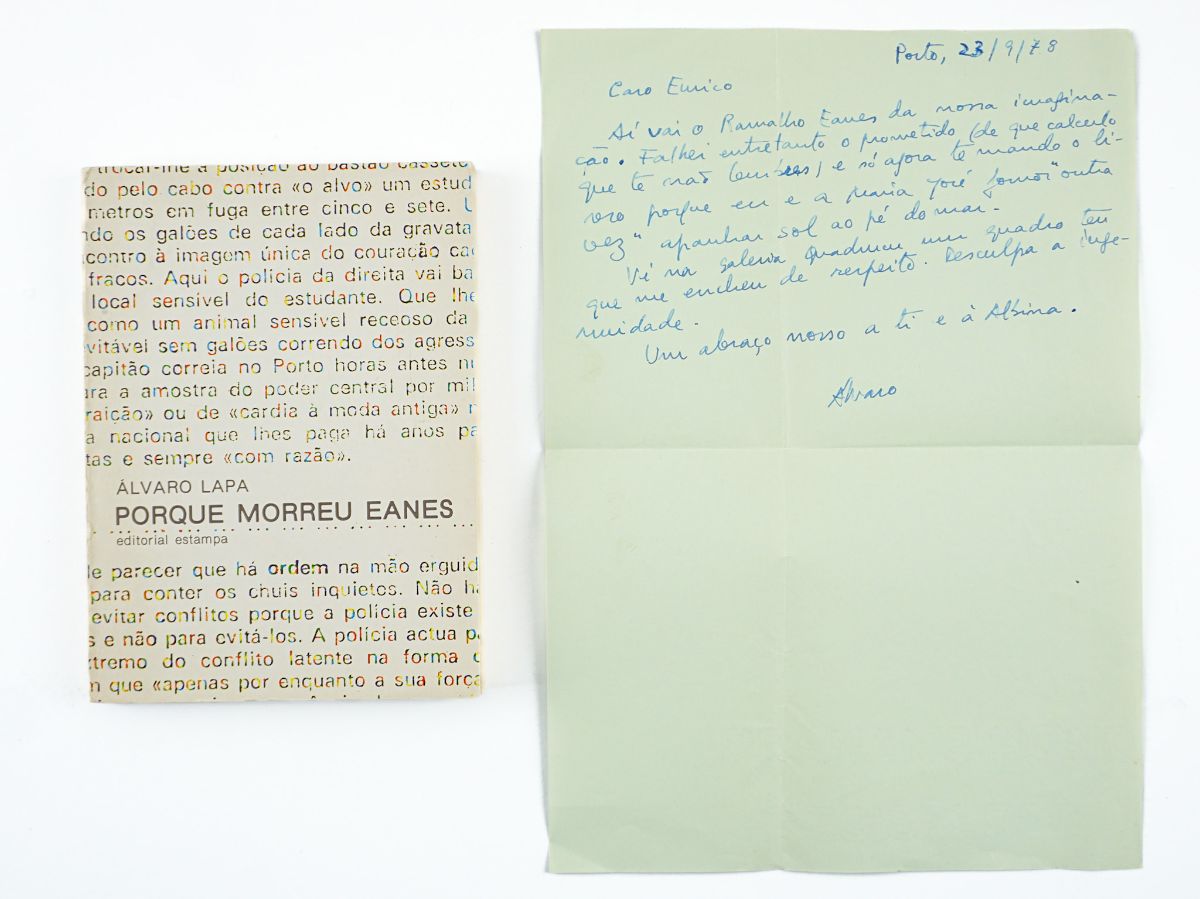 trocar-lhe a posição ao bastão cassete
do pelo cabo contra «o alvo» um estud
metros em fuga entre cinco e sete.
ndo os galões de cada lado da gravata
contro à imagem única do couração cad
fracos. Aqui o polícia da direita vai ba
local sensível do estudante. Que lhe
como um animal sensível receoso da
vitável sem galões correndo dos agress
capitão correia no Porto horas antes n
ara a amostra do poder central por mil
raição» ou de «cardia à moda antiga»
a nacional que lhes paga há anos pa
tas e sempre «com razão».
ÁLVARO LAPA
PORQUE MORREU EANES
editorial estampa
le parecer que há ordem na mão erguid
para conter os chuis inquietos. Não ha
evitar conflitos porque a polícia existe
s e não para evitá-los. A polícia actua pa
xtremo do conflito latente na forma
m que «apenas por enquanto a sua força
Porto, 23/9/78
Caro Eurico
Aí vai o Ramalho Eanes da nossa imagina-
ção. Falhei entretanto o prometido (de que calculo
que te não lembres) e só agora te mando o li-
vro porque eu e a Maria José fomos "outra
vez" apanhar sol ao pé do mar.
Vi na galeria Quadrum um quadro teu
que me encheu de respeito. Desculpa a inge-
nuidade.
Um abraço nosso a ti e à Albina.
Álvaro